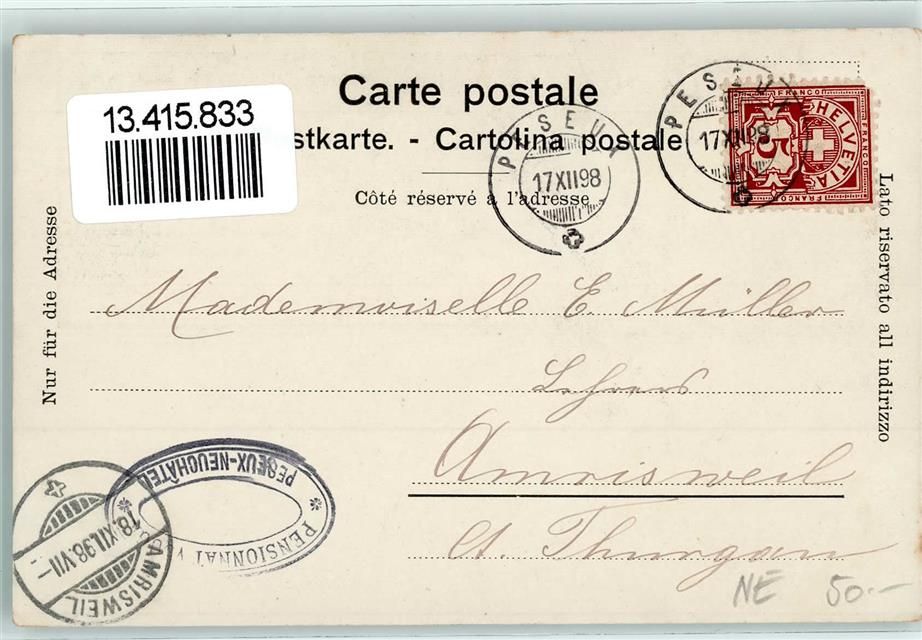 Carte postale
13.415.833
stkarte. - Cartolina postale
Côté réservé à l'adresse
PESEUX
17 XII 98
PESEUX
17 XII 98
FRANCO
HELVETIA
5
FRANCO
FRANCO
Nur für die Adresse
Lato riservato all indirizzo
Mademoiselle E. Müller
Lehrers
Amrisweil
Ct. Thurgau
PENSIONNAT
PESEUX-NEUCHÂTEL
AMRISWEIL
18.XII.98.VII-
NE 50.-